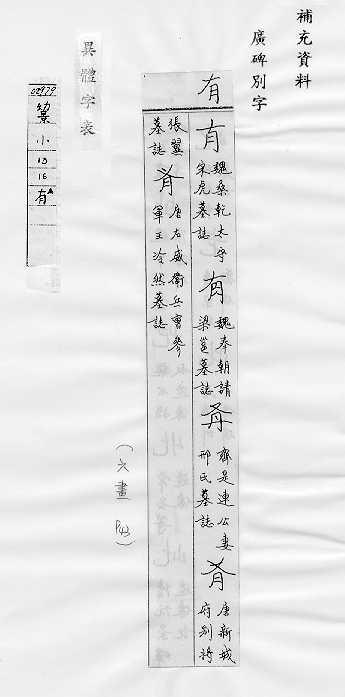 補充資料
廣碑別字
有
有
魏桑乾太守
宋虎墓誌
有
魏奉朝請
梁邕墓誌
齊是連公妻
邢氏墓誌
唐新城
府別將
張翼
墓誌
唐右威衛兵曹參
軍王泠然墓誌
(六畫 P43)
異體字表
02979
小
13
16
有